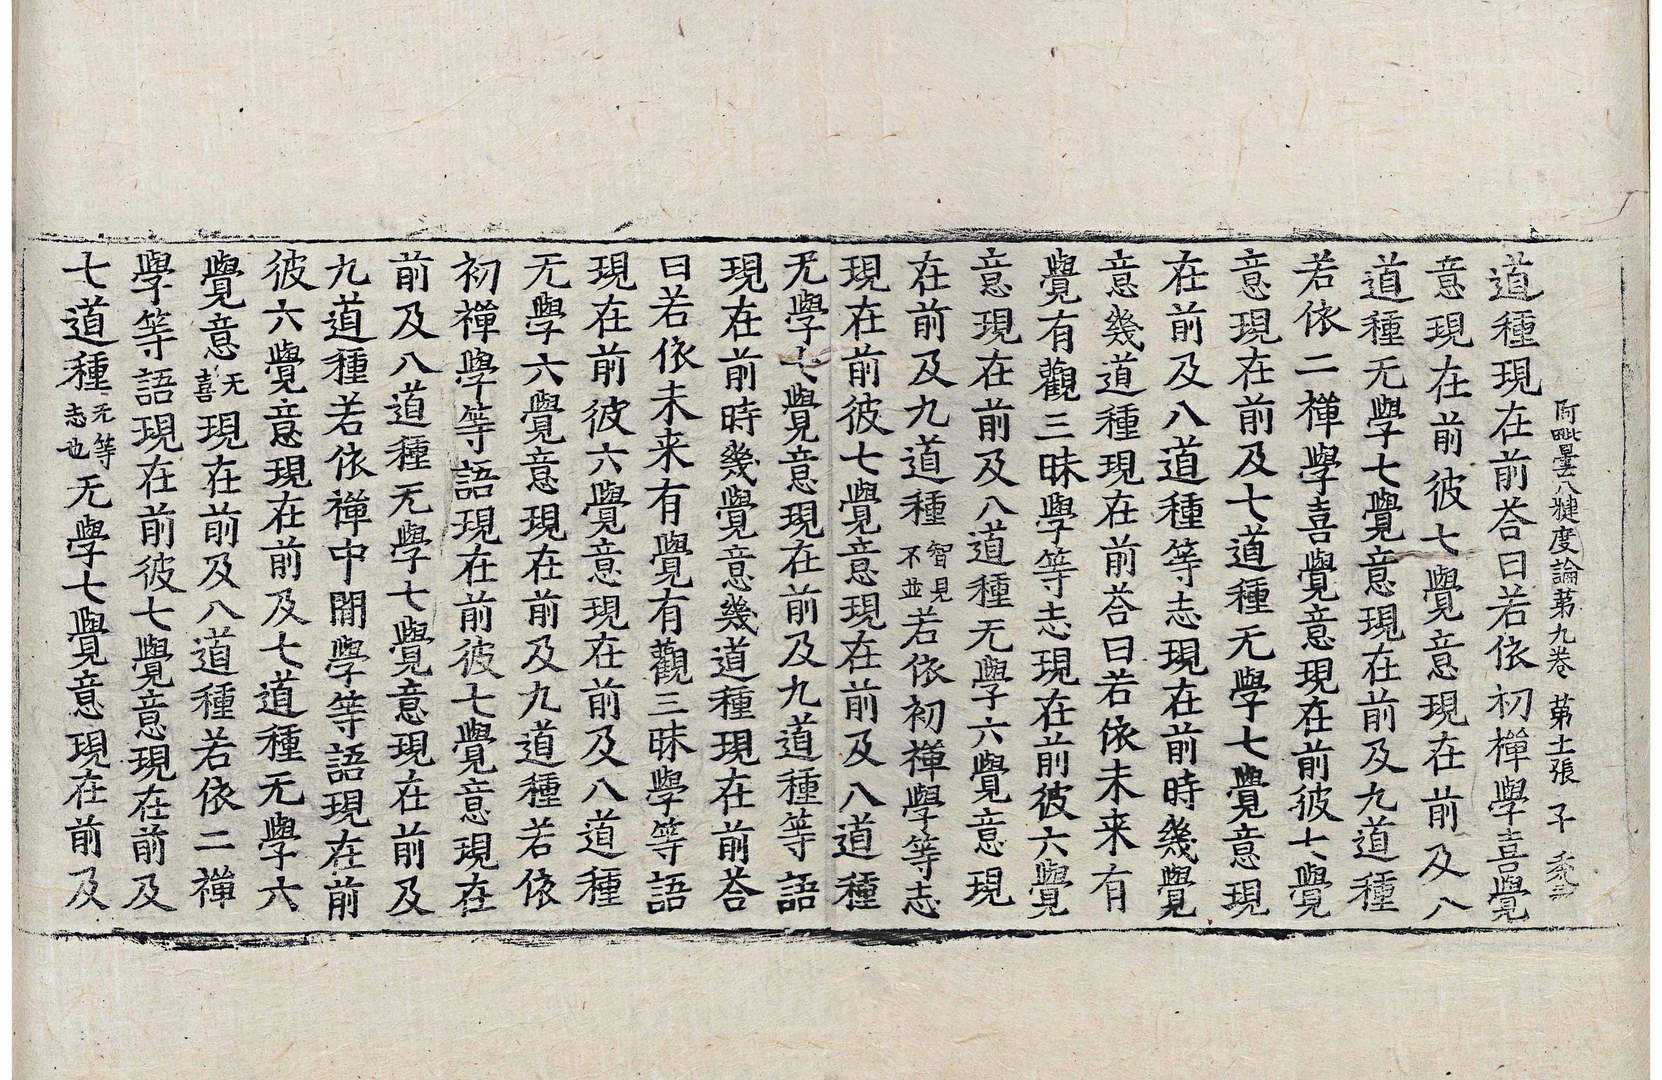 阿毗曇八犍度論第九卷 第十二張 子
道種現在前荅曰若依初禪學喜覺
意現在前彼七覺意現在前及八
道種无學七覺意現在前及九道種
若依二禪學喜覺意現在前彼七覺
意現在前及七道種无學七覺意現
在前及八道種等志現在前時幾覺
意幾道種現在前荅曰若依未来有
覺有觀三昧學等志現在前彼六覺
意現在前及八道種无學六覺意現
在前及九道種智見不並若依初禪學等志
現在前彼七覺意現在前及八道種
无學七覺意現在前及九道種等語
現在前時幾覺意幾道種現在前荅
曰若依未来有覺有觀三昧學等語
現在前彼六覺意現在前及八道種
无學六覺意現在前及九道種若依
初禪學等語現在前彼七覺意現在
前及八道種无學七覺意現在前及
九道種若依禪中閒學等語現在前
彼六覺意現在前及七道種无學六
覺意无喜現在前及八道種若依二禪
學等語現在前彼七覺意現在前及
七道種无等志也无學七覺意現在前及